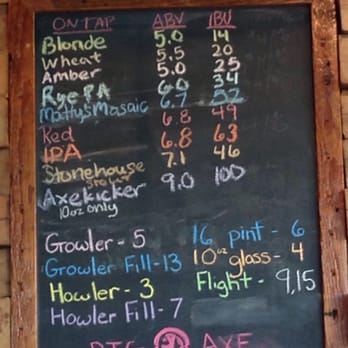 ON TAP ABV IBU
Blonde 5.0 14
Wheat 5.5 20
Amber 5.0 25
Rye PA 6.0 34
Matty's Mosaic 6.7 52
Red 6.8 49
IPA 6.8 63
Stonehouse 7.1 46
STOUT
Axekicker 9.0 100
10oz only
Growler - 5
Growler Fill - 13
Howler - 3
Howler Fill - 7
16 pint - 6
10oz glass - 4
Flight - 9,15
BIG AXE